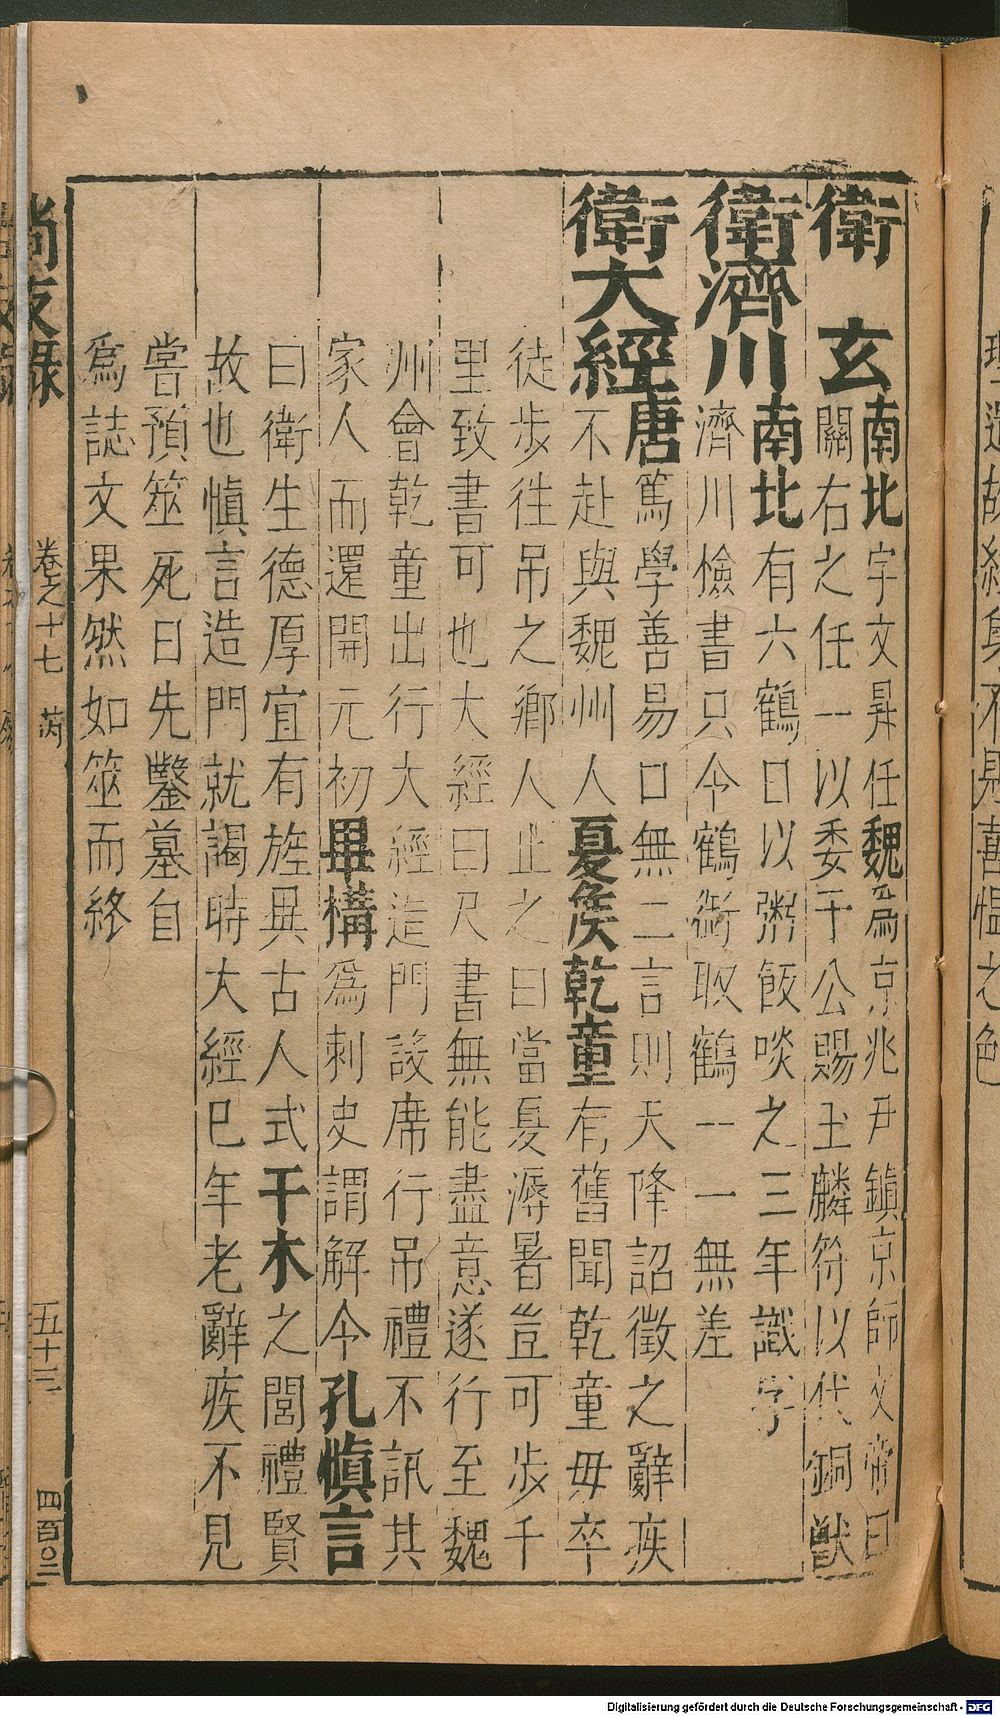 衛 玄 南北 字文昇任魏爲京兆尹鎮京師文帝曰
關右之任一以委于公賜玉麟符以代銅獸
衛濟川 南北 有六鶴日以粥飯啖之三年識字
濟川檢書只令鶴銜取鶴一一無差
衛大經 唐 篤學善易口無二言則天降詔徵之辭疾
不赴與魏州人夏侯乾童有舊聞乾童毋卒
徒步往吊之鄉人止之曰當夏溽暑豈可步千
里致書可也大經曰尺書無能盡意遂行至魏
州會乾童出行大經造門設席行吊禮不訊其
家人而還開元初畢構爲刺史謂解令孔慎言
曰衛生德厚宜有旌異古人式干木之閭禮賢
故也慎言造門就謁時大經巳年老辭疾不見
嘗預筮死日先鑿墓自
爲誌文果然如筮而終
尚友錄 卷之十七 芮 五十三 四百〇二
Digitalisierung gefördert durch die Deutsche Forschungsgemeinschaft - DFG